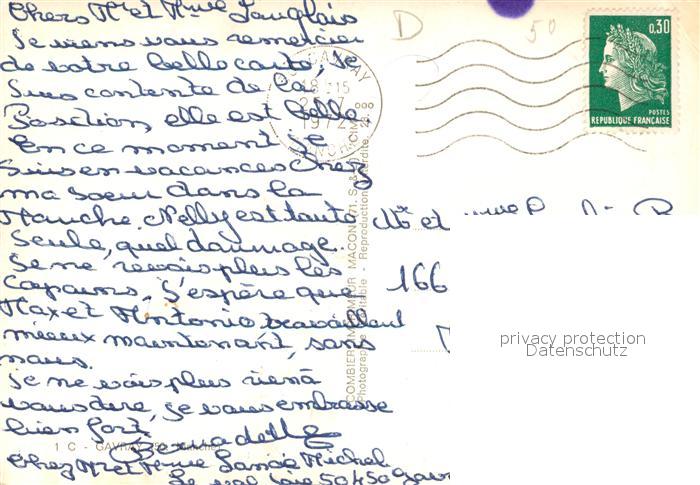 Chers Mr et Mme Langlois
Je viens vous remercier
de votre belle carte, Je
suis contente de la
Position, elle est belle
En ce moment je
suis en vacances chez
ma sœur dans la
Manche. Nelly est toute
seule, quel dommage.
Je ne vois plus les
copains. J'espère que
Max et Antonio travaillent
mieux maintenant, sans
nous.
Je ne vois plus rien à
vous dire, je vous embrasse
bien fort.
Bernadette
Chez Mr et Mme Michel
50450
D
50
0,30
POSTES
REPUBLIQUE FRANÇAISE
GAVRAY
1972
MANCHE
Mr et
166
COMBIER IMPRIMEUR MACON (71. S.-&-L.) "CIM"
Photographie véritable - Reproduction interdite.
1 C - GAVRAY (50. Manche)
privacy protection
Datenschutz